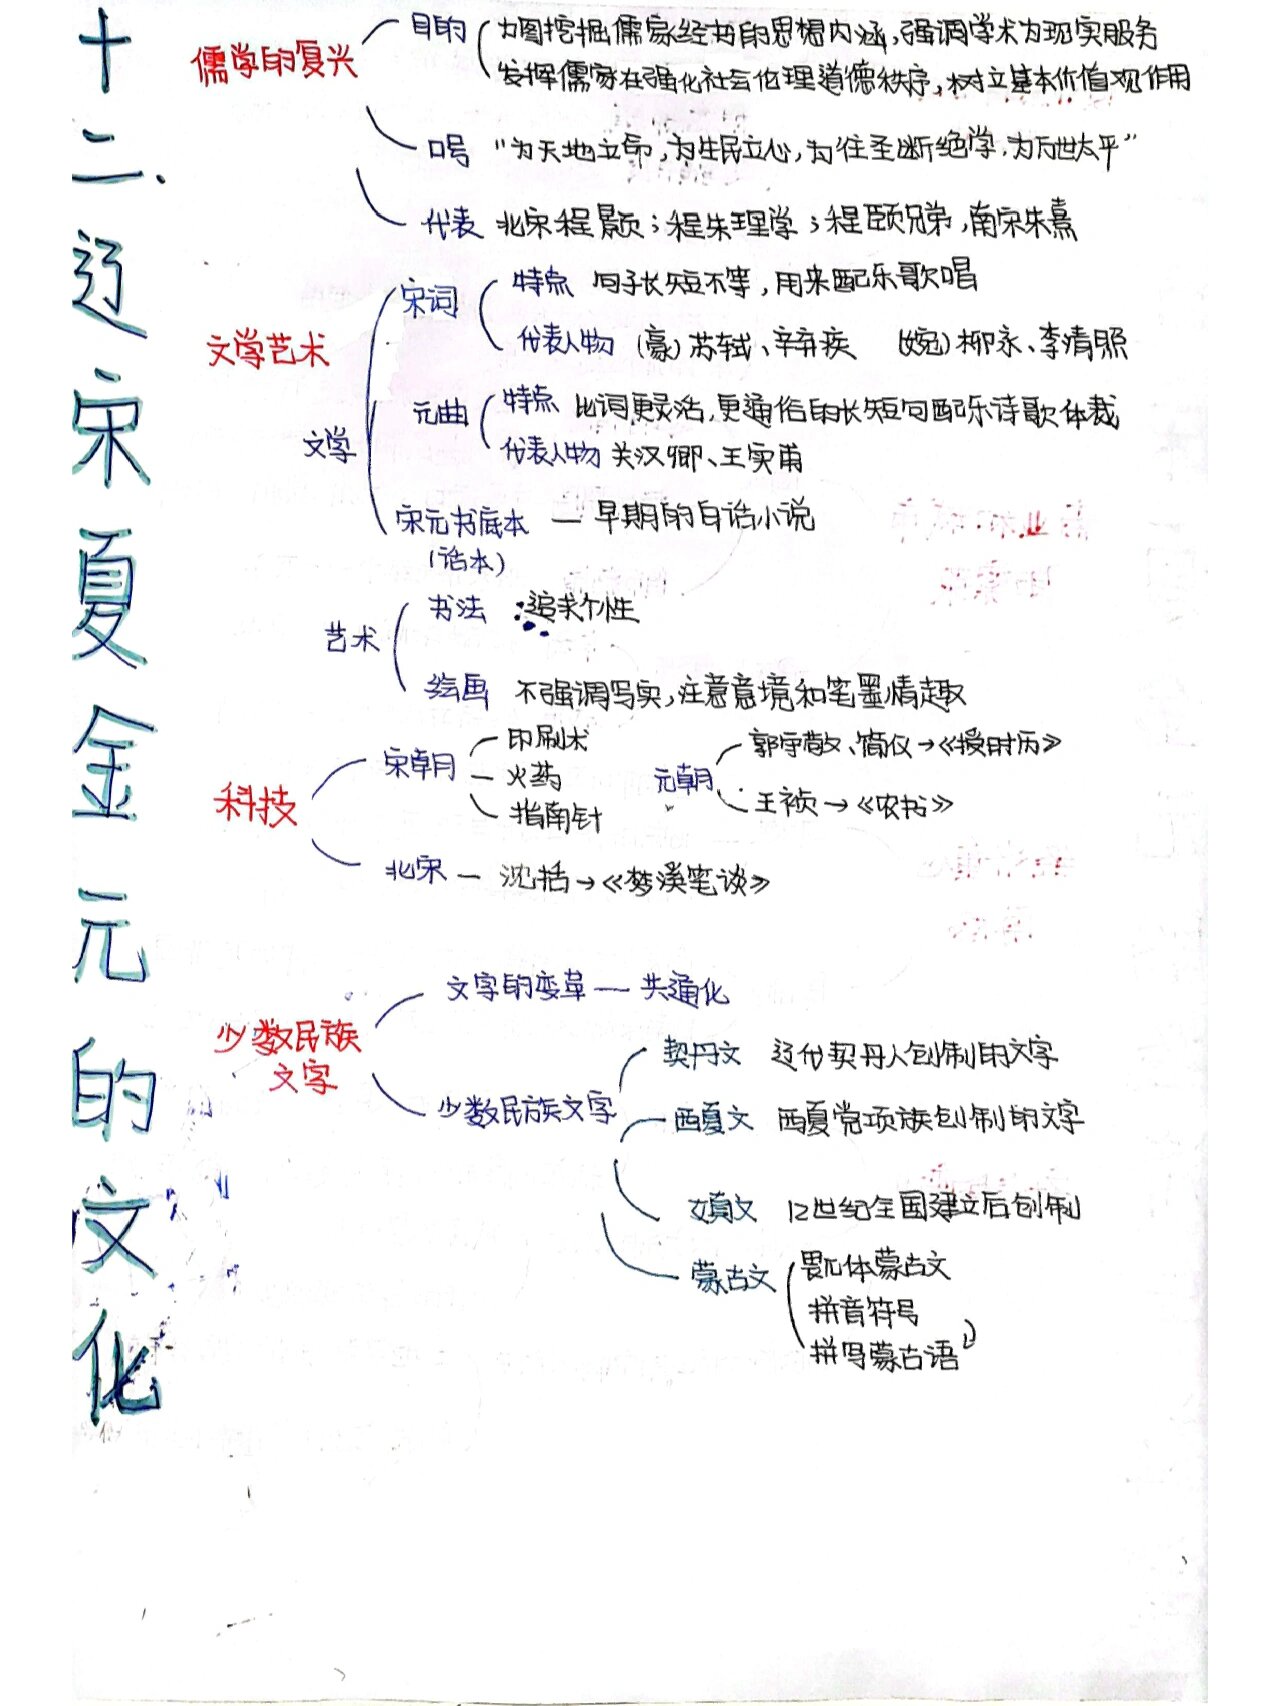 十二、辽宋夏金元的文化
儒学的复兴
目的
力图挖掘儒家经典的思想内涵,强调学术为现实服务
发挥儒家在强化社会伦理道德秩序,树立基本价值观作用
口号 “为天地立命,为生民立心,为往圣断绝学,为万世太平”
代表 北宋程景页;程朱理学;程颐兄弟,南宋朱熹
文学艺术
文学
宋词
特点 句子长短不等,用来配乐歌唱
代表人物 (豪)苏轼、辛弃疾 (婉)柳永、李清照
元曲
特点 比词更灵活,更通俗的长短句配乐诗歌体裁
代表人物 关汉卿、王实甫
宋元书底本 — 早期的白话小说
(话本)
艺术
书法 :追求个性
绘画 不强调写实,注意意境和笔墨情趣
科技
宋朝
印刷术
火药
指南针
元朝
郭守敬、简仪→《授时历》
王祯→《农书》
北宋 — 沈括→《梦溪笔谈》
少数民族
文字
文字的变革 — 共通化
少数民族文字
契丹文 辽代契丹人创制的文字
西夏文 西夏党项族创制的文字
女真文 12世纪金国建立后创制
蒙古文
畏兀体蒙古文
拼音符号
拼写蒙古语